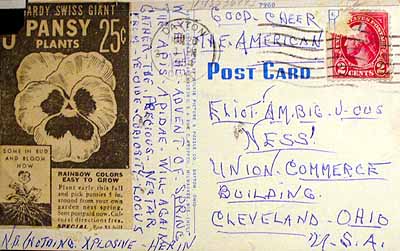 HARDY SWISS GIANT
PANSY 25¢
PLANTS
SOME IN BUD
AND BLOOM
NOW
RAINBOW COLORS
EASY TO GROW
Plant early this fall
and pick pansies
around from your own
garden next spring.
Sent postpaid now. Cul-
tural directions free.
SPECIAL
WITH THE ADVENT OF SPRING
THE APIS, APIDAE, WILL AGAIN
GATHER THE PRECIOUS NECTAR
FROM
NO (NOTHING XPLOSIVE HEREIN
GOOD CHEER
THE AMERICAN
POST CARD
UNITED STATES POSTAGE
2 CENTS 2
ELIOT-AM.BIG-U-OUS
NESS!
UNION-COMMERCE
BUILDING.
CLEVELAND-OHIO
U.S.A.